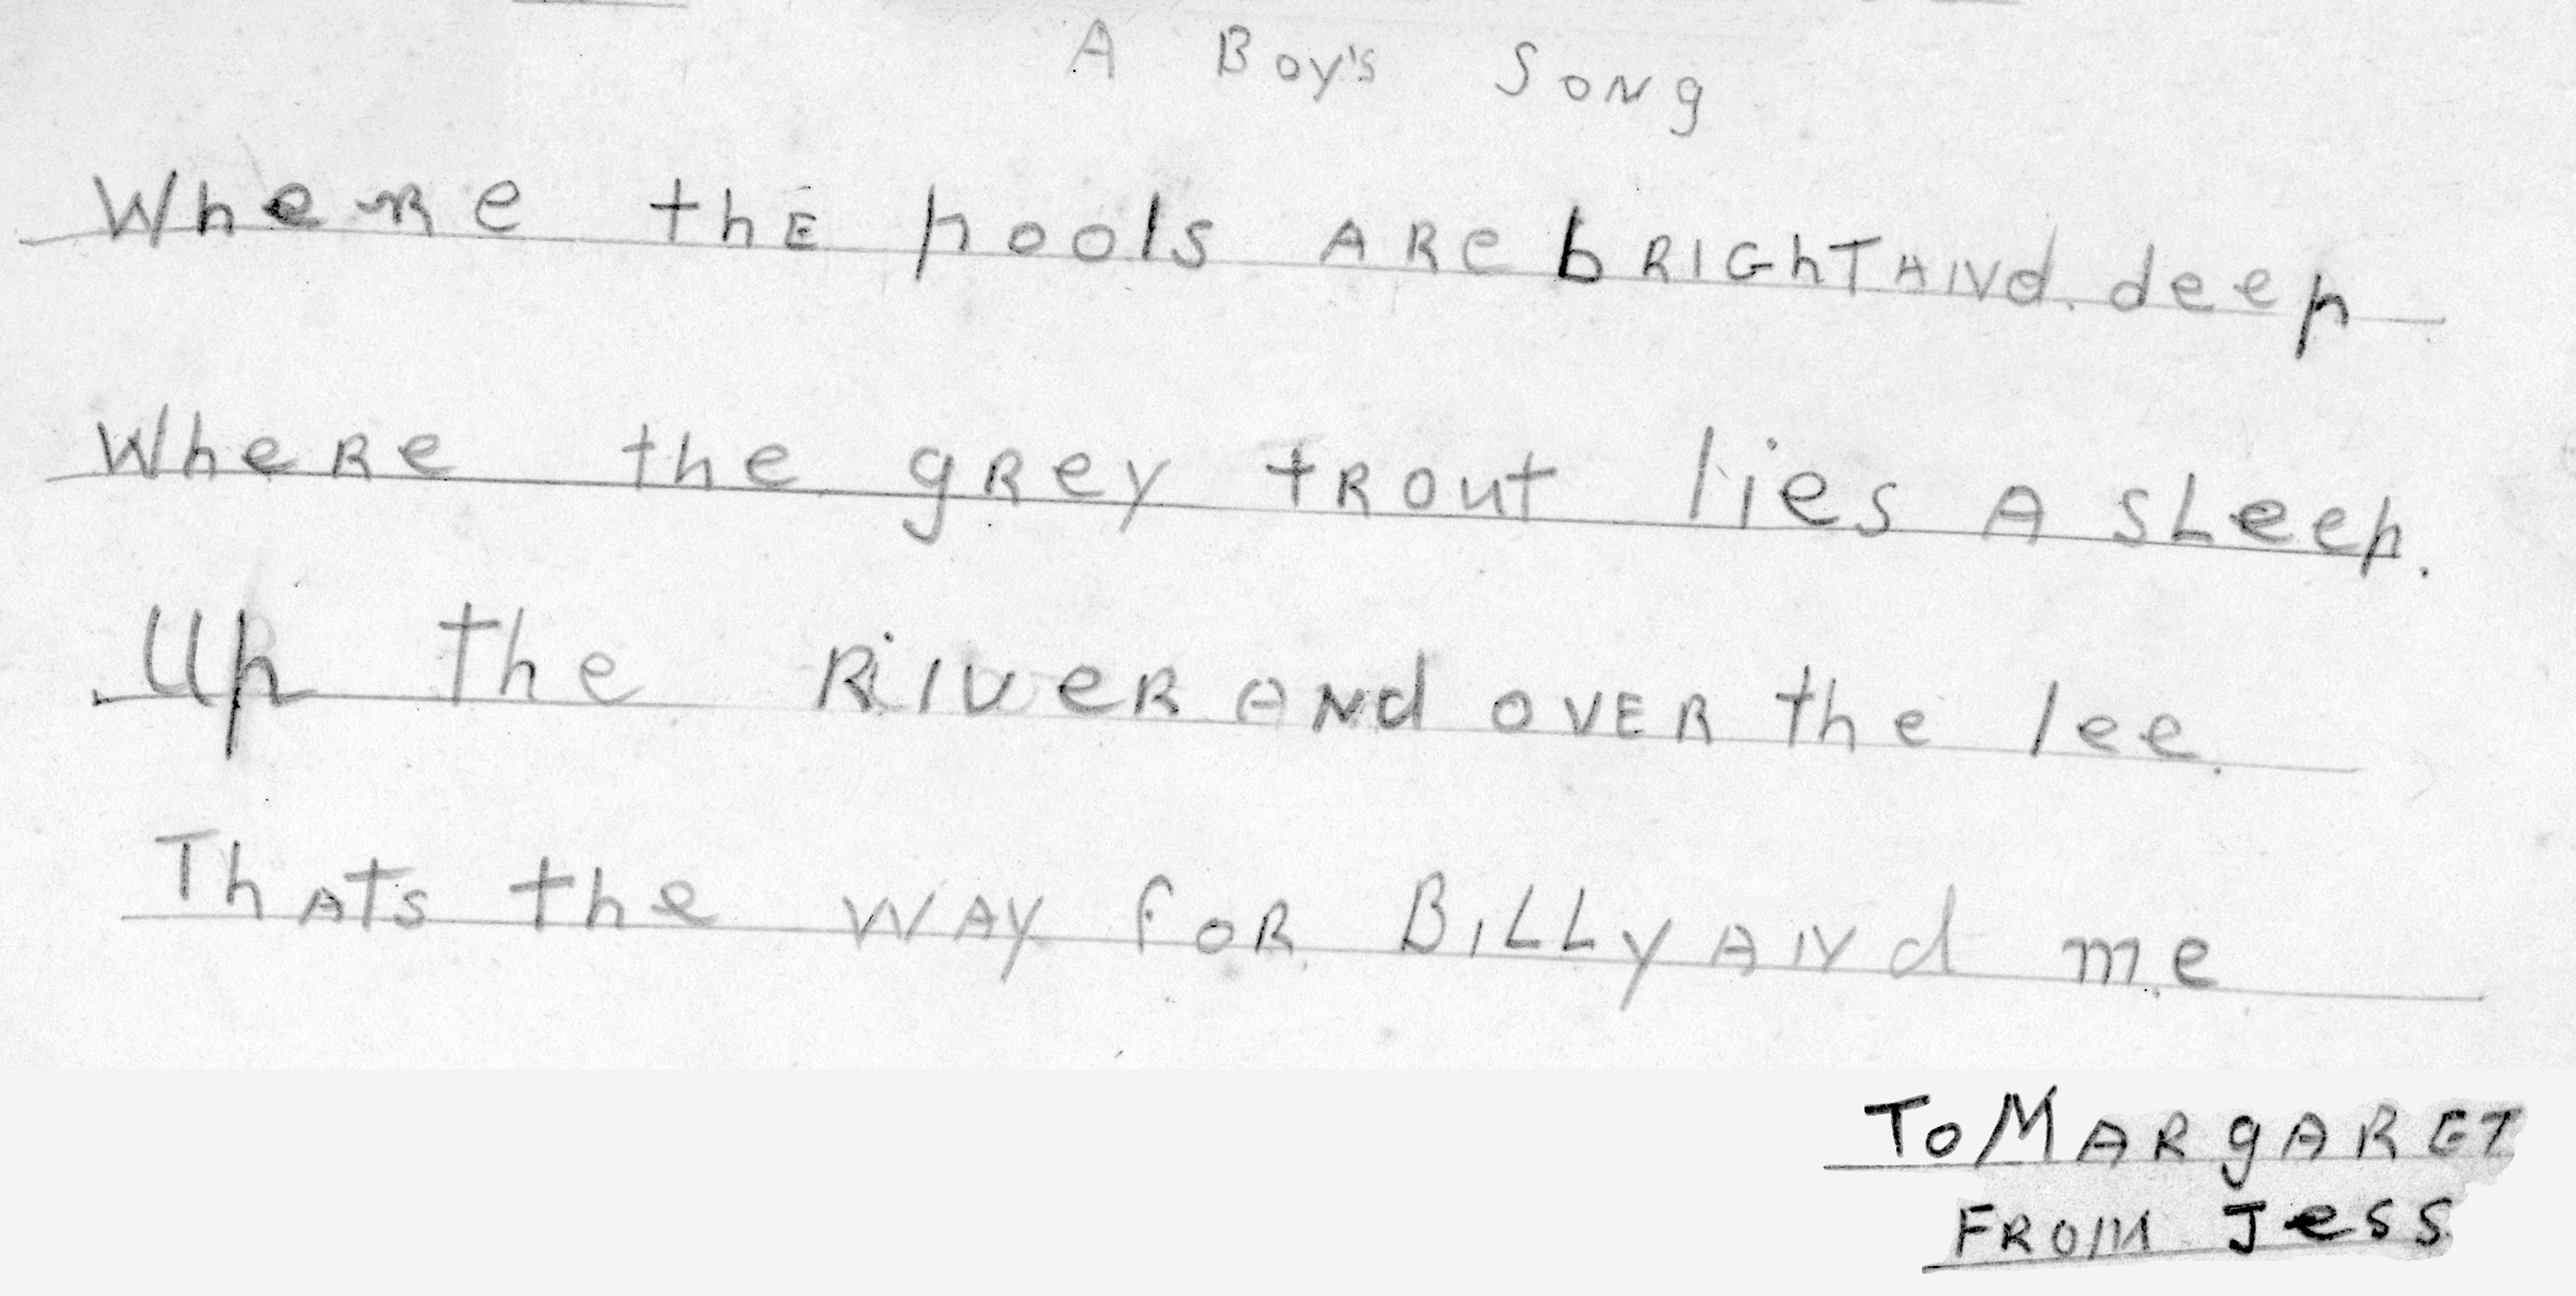 A Boy's Song
Where thE pools ARe bRIGhT ANd deep
WheRe the gRey tRout lies A sLeep.
Up the RiveR ANd oVER the lee.
ThATs the WAY foR BiLLy ANd me
To MARgARET
FROM Jess